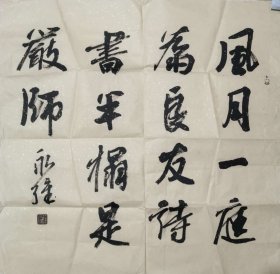 風月一庭
為良友詩
書半榻是
嚴師
永強